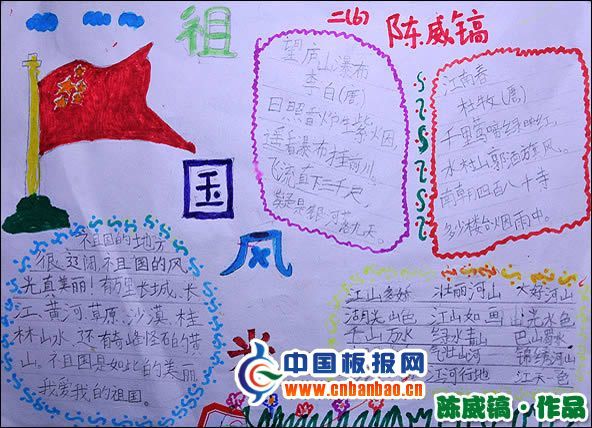 祖
国
风
光
二(6)
陈威镐
望庐山瀑布
李白(唐)
日照香炉生紫烟
遥看瀑布挂前川
飞流直下三千尺
疑是银河落九天。
江南春
杜牧(唐)
千里莺啼绿映红,
水村山郭酒旗风。
南朝四百八十寺
多少楼台烟雨中。
祖国的地方
很辽阔,祖国的风
光真美丽!有万里长城、长
江、黄河草原、沙漠、桂
林山水、还有奇峰怪石的黄
山。祖国是如此的美丽
我爱我的祖国。
江山多娇 壮丽河山 大好河山
湖光山色 江山如画 山光水色
千山万水 绿水青山 巴山蜀水
气壮山河 锦绣河山
江河行地 江天一色
中国板报网
www.cnbanbao.cn
陈威镐·作品